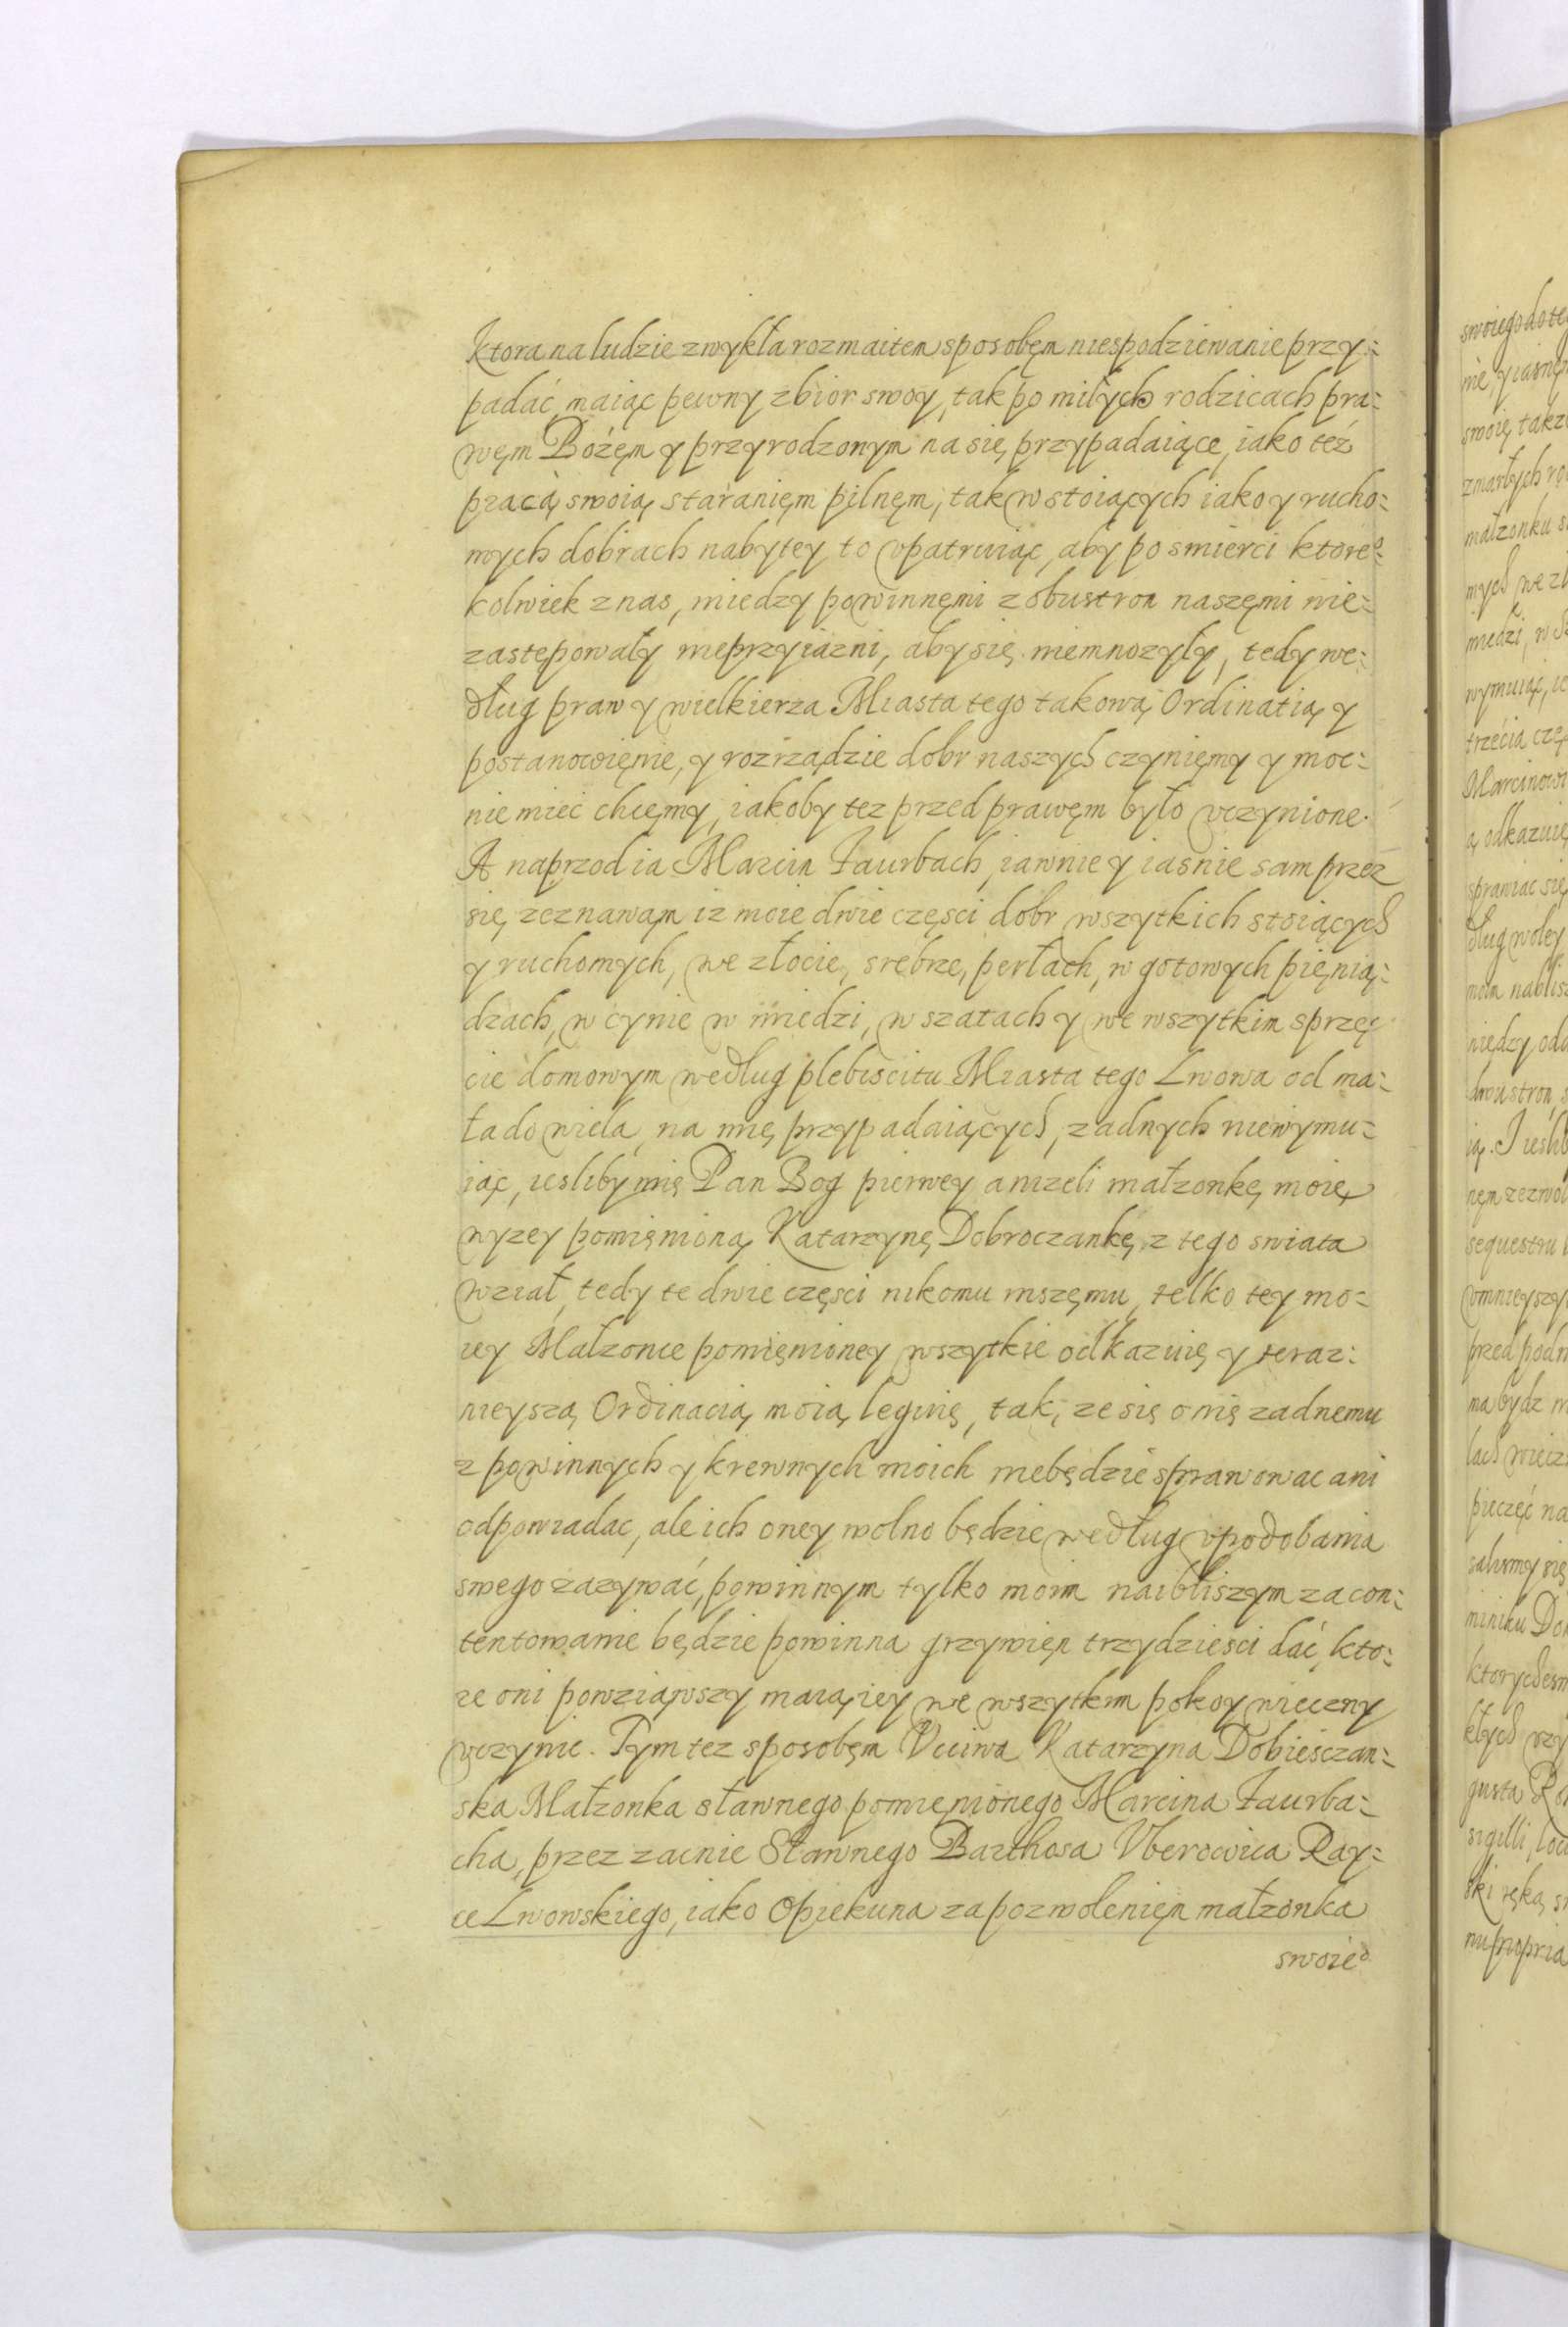 ktora na ludzie zwykła rozmaitem sposobęm niespodziewanie przy:
padać, maiąc pewny zbior swoy, tak po miłych rodzicach pra:
węm Bożęm y przyrodzonym na się przypadaiące, iako też
pracą swoią staranięm pilnęm, tak w stoiących iako y rucho:
mych dobrach nabytey to vpatruiąc, aby po smierci ktoreᵒ
kolwiek z nas, miedzy powinnęmi z obustron naszęmi nie:
zastępowały nieprzyiazni, aby się niemnozyły, tedy we:
dług praw y wielkierza Miasta tego takową Ordinatią y
postanowięnie, y rozrządzie dobr naszych czynięmy y moc:
nie mieć chcęmy, iakoby tez przed prawęm było vczynione.
A naprzod ia Marcin Faurbach, iawnie y iasnie sam przez
się zeznawam iz moie dwie częsci dobr wszytkich stoiących
y ruchomych, we złocie, srebrze, perłach, w gotowych pięnią:
dzach, w cynie w miedzi, w szatach y we wszytkim sprzę:
cie domowym według plebiscitu Miasta tego Lwowa od ma:
ła do wiela, na mię przypadaiących, zadnych niewymu:
iąc, iesliby mię Pan Bog pierwey anizeli małzonkę moię
wyzey pomięnioną Katarzynę Dobroczankę z tego swiata
wziął, tedy te dwie częsci nikomu inszęmu, telko tey mo:
iey Małzonce pomięnioney wszytkie odkazuię y teraz:
nieyszą Ordinacią moią leguię, tak, ze się o nię zadnemu
z powinnych y krewnych moich niebędzie sprawowac ani
odpowiadac, ale ich oney wolno będzie według vpodobania
swego zazywać, powinnym tylko moim naibliszym za con:
tentowanie będzie powinna grzywięn trzydziesci dać, kto:
re oni powziąwszy maią iey we wszytkim pokoy wieczny
vczynic. Tym tez sposobęm Vcciwa Katarzyna Dobiesczan:
ska Małzonka sławnego pomięnionego Marcina Faurba:
cha, przez zacnie Sławnego Barthosa Vberowica Ray:
ce Lwowskiego, iako Opiekuna za pozwolenięm małzonka
swoieᵒ